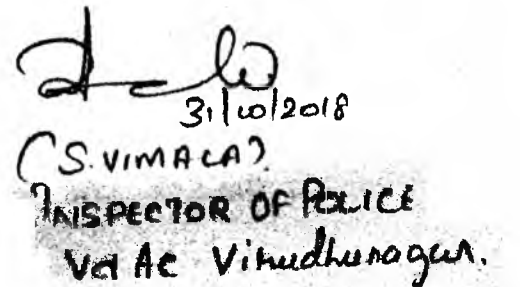 31/10/2018
(S. VIMALA)
INSPECTOR OF POLICE
V&AC Virudhunagar.